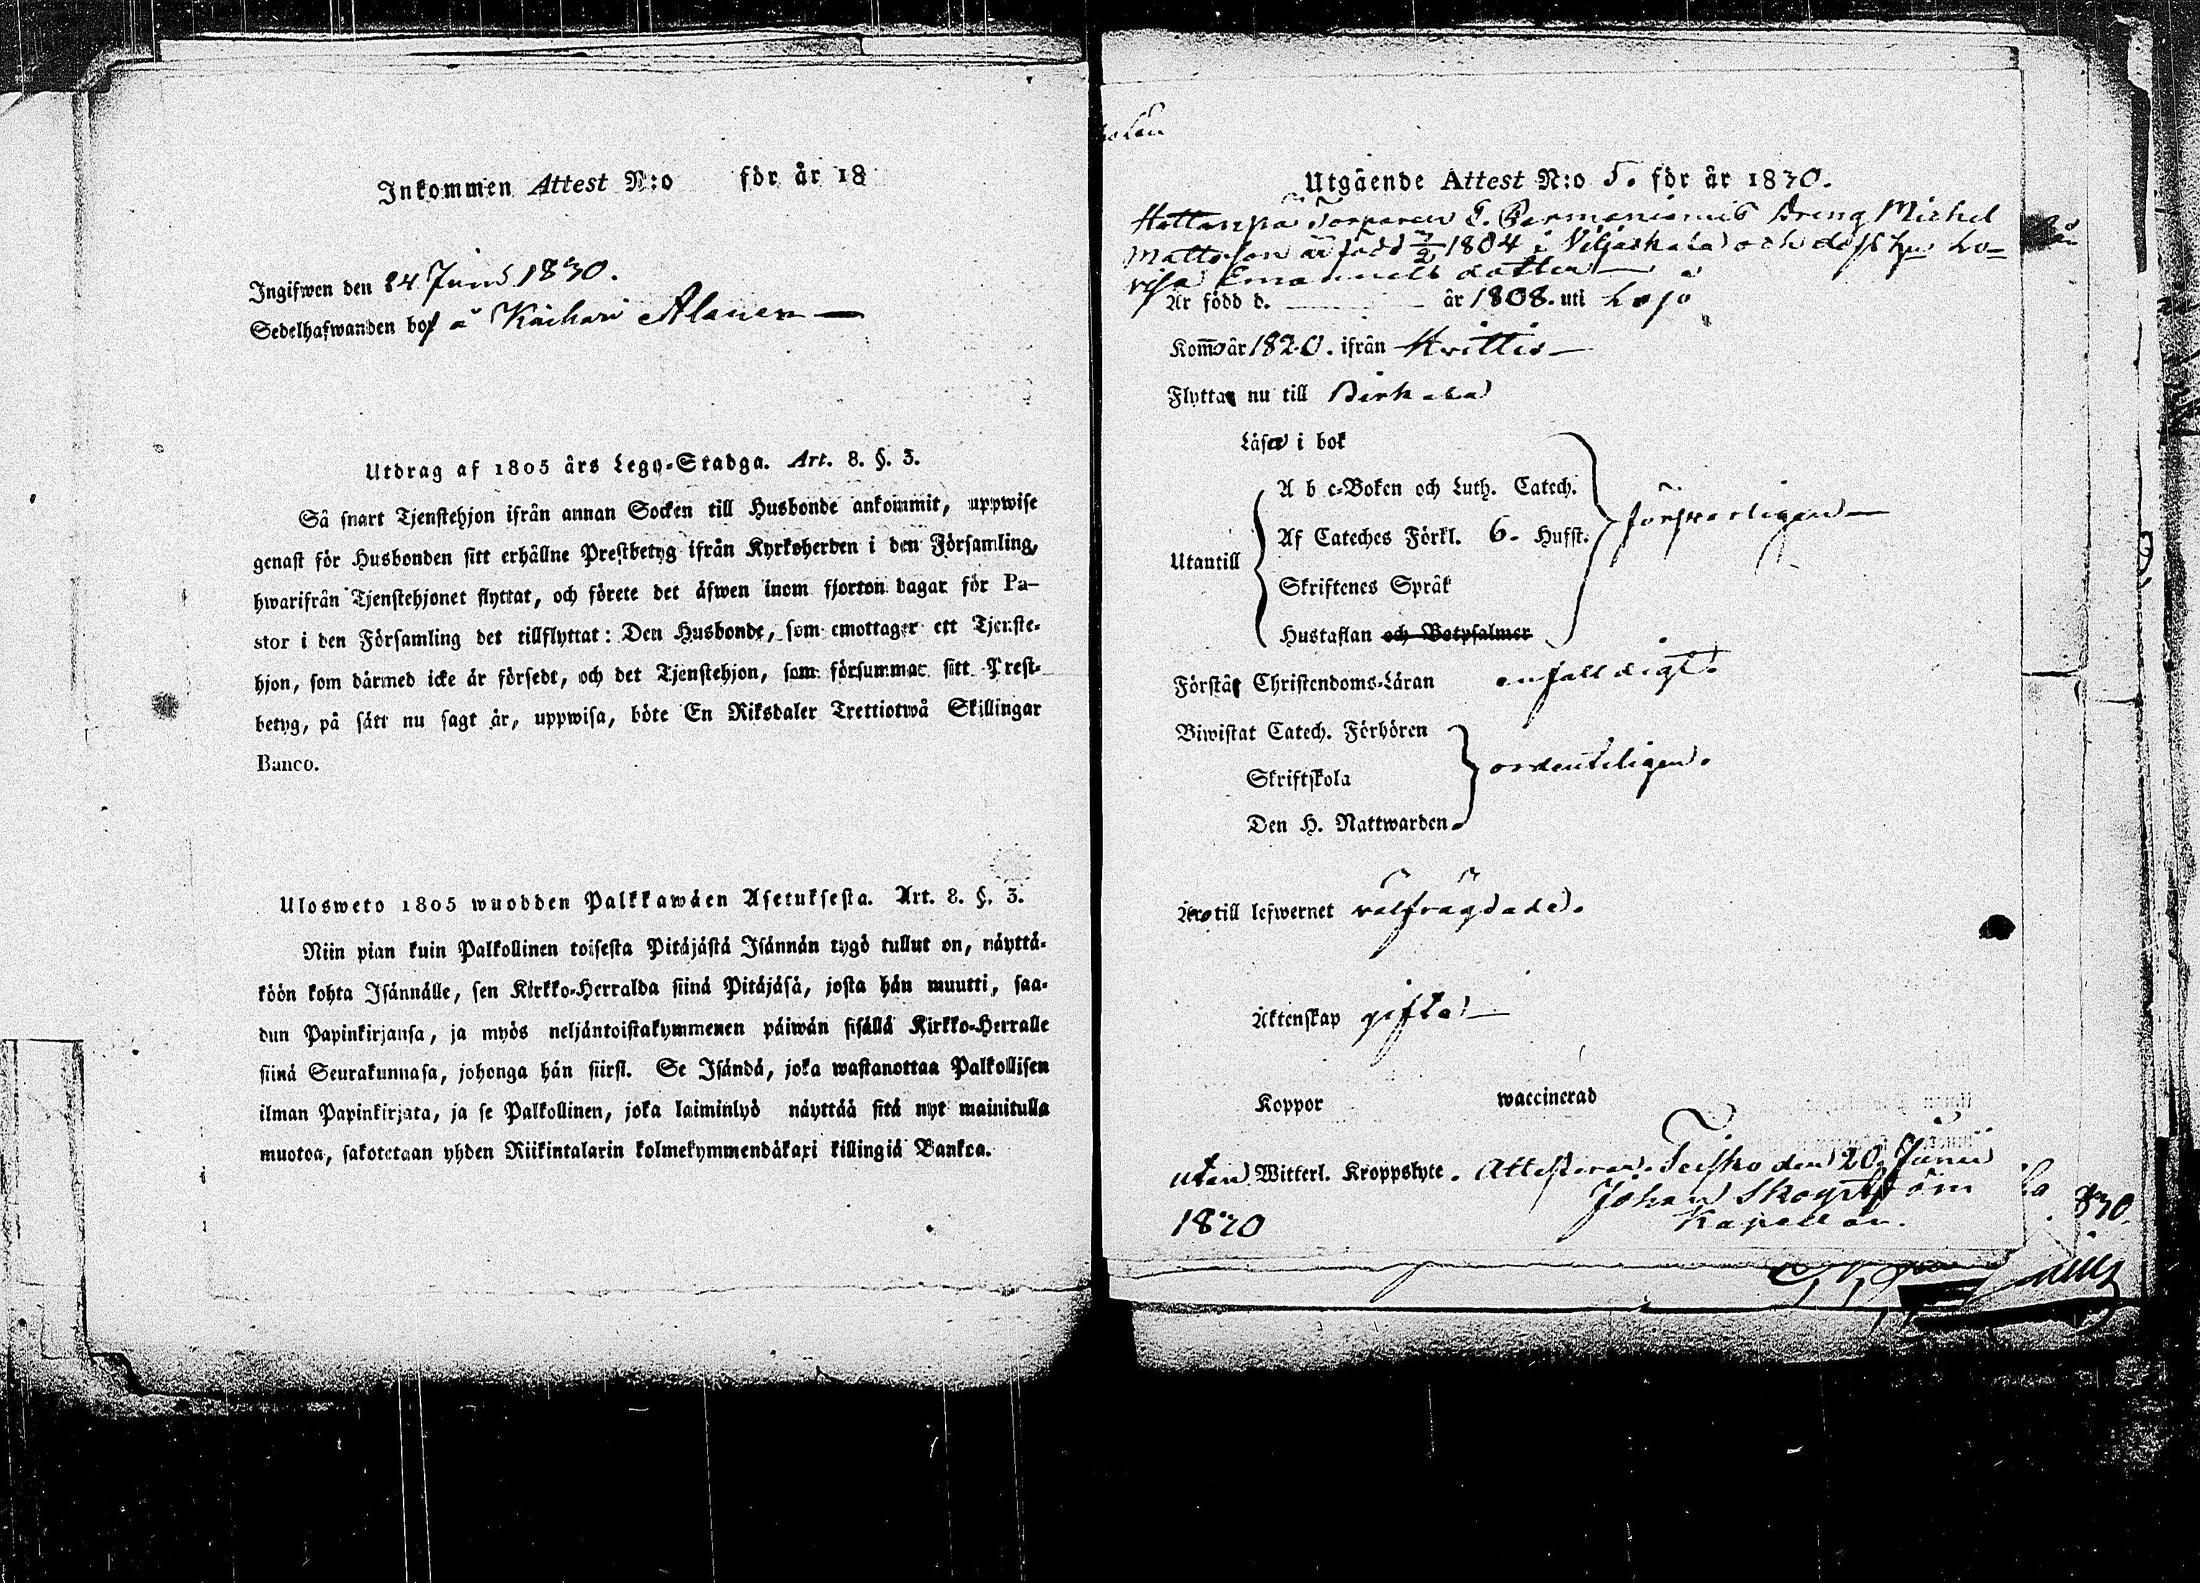 Inkommen Attest N:o för år 18
Ingifwen den 24 Junii 1830.
Sedelhafwanden bor å Kaihari Alanen
Utdrag af 1805 års Lego-Stadga. Art. 8. §. 3.
Så snart Tjenstehjon ifrån annan Socken till Husbonde ankommit, uppwise
genast för Husbonden sitt erhållne Prestbetyg ifrån Kyrkoherden i den Församling,
hwarifrån Tjenstehjonet flyttat, och förete det äfwen inom fjorton dagar för Pa-
stor i den Församling det tillflyttat: Den Husbonde, som emottager ett Tjenste-
hjon, som därmed icke är försedt, och det Tjenstehjon, som försummar sitt Prest-
betyg, på sätt nu sagt är, uppwisa, böte En Riksdaler Trettiotwå Skillingar
Banco.
Ulosweto 1805 wuodden Palkkawäen Asetuksesta. Art. 8. §. 3.
Niin pian kuin Palkollinen toisesta Pitäjästä Isännän tygö tullut on, näyttä-
köön kohta Isännälle, sen Kirkko-Herralda siinä Pitäjäsä, josta hän muutti, saa-
dun Papinkirjansa, ja myös neljäntoistakymmenen päiwän sisällä Kirkko-Herralle
siinä Seurakunnasa, johonga hän siirsi. Se Isändä, joka wastanottaa Palkollisen
ilman Papinkirjata, ja se Palkollinen, joka laiminlyö näyttää sitä nyt mainitulla
muotoa, sakotetaan yhden Riikintalarin kolmekymmendäkaxi killingiä Bankoa.
Utgående Attest N:o 5. för år 1830.
Hattanpää Torparen Dreng Michel
Mattsson är född 1804 i och dess hu Lo-
visa Emanuels dotter
Är född d. år 1808. uti Lojo
Komo år 1820. ifrån Hvittis
Flytta nu till Birkala
Läsa i bok
A b c-Boken och Luth. Catech.
Utantill Af Cateches Förkl. 6. Hufst. försvarligen
Skriftenes Språk
Hustaflan och Botpsalmer
Förstå Christendoms-Läran enfalldigt.
Biwistat Catech. Förhören
Skriftskola ordenteligen.
Den H. Nattwarden
Äro till lefwernet välfrägdade.
Äktenskap gifta
Koppor waccinerad
utan Witterl. Kroppslyte. Attesterar. Teisko den 20 Junii
1830 Johan Skogström
Kapellan.